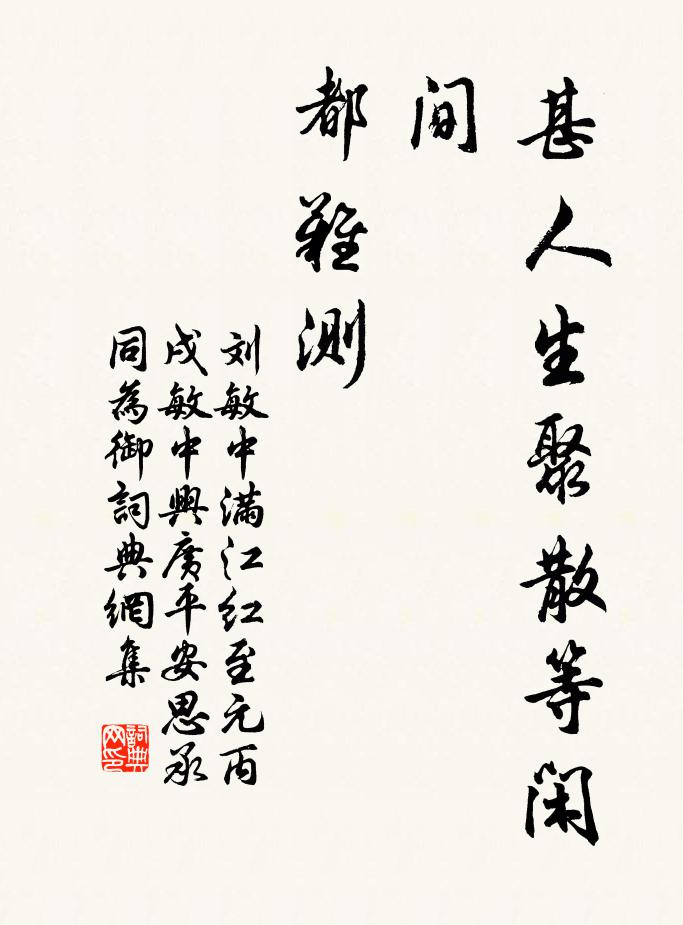 甚人生聚散等闲
间
都难测
刘敏中满江红至元丙
戌敏中與廣平安思承
同為御詞典網集
詞典
网印